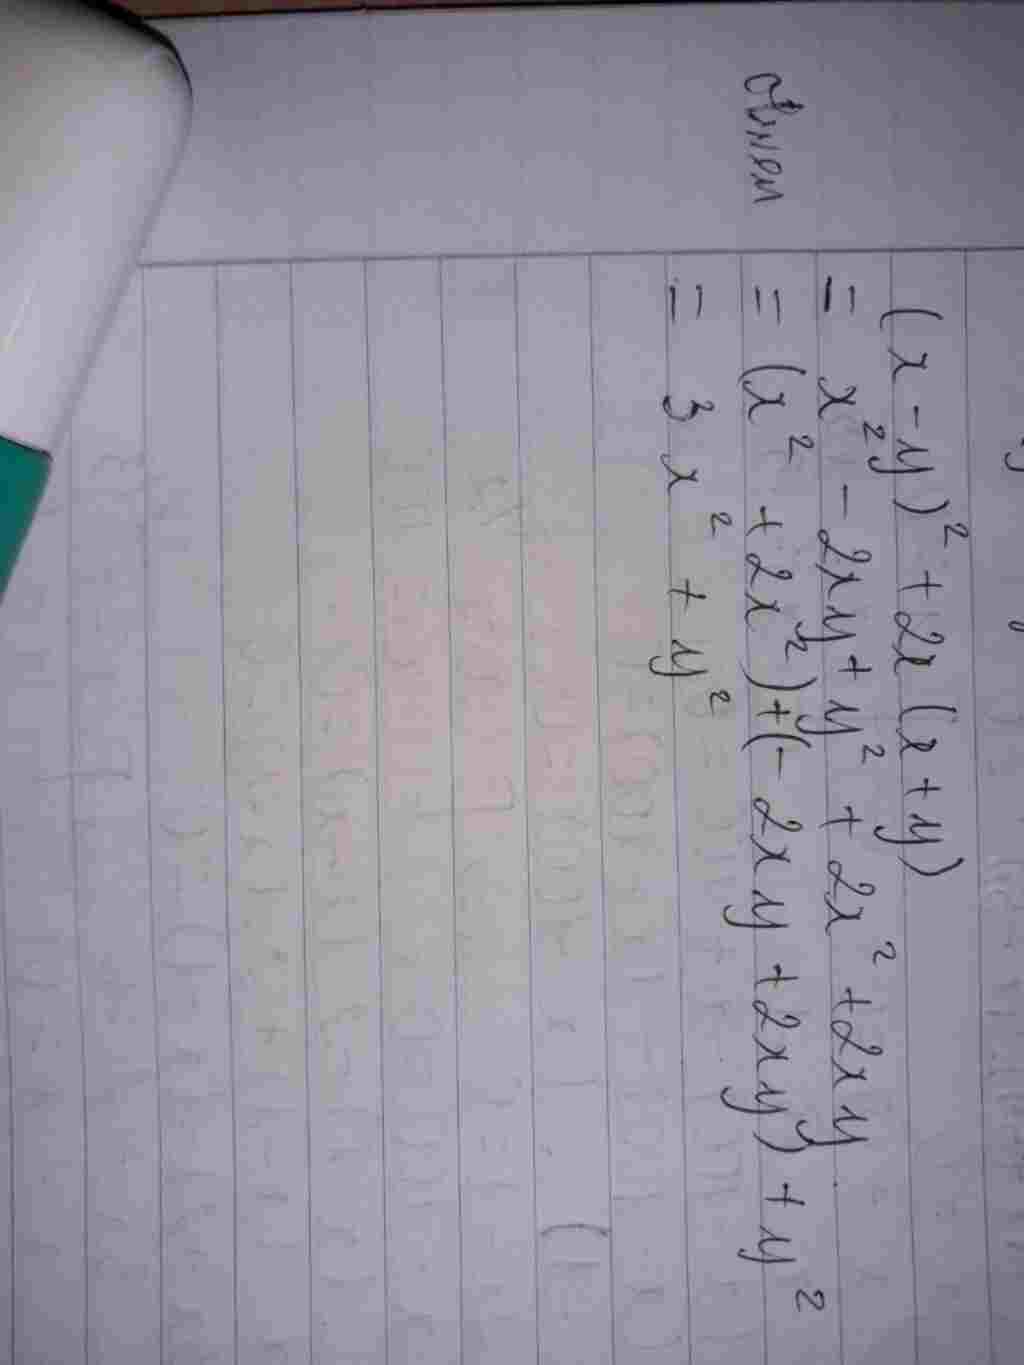 (x - y)² + 2x (x + y)
= x² - 2xy + y² + 2x² + 2xy
= (x² + 2x²) + (- 2xy + 2xy) + y²
= 3x² + y²